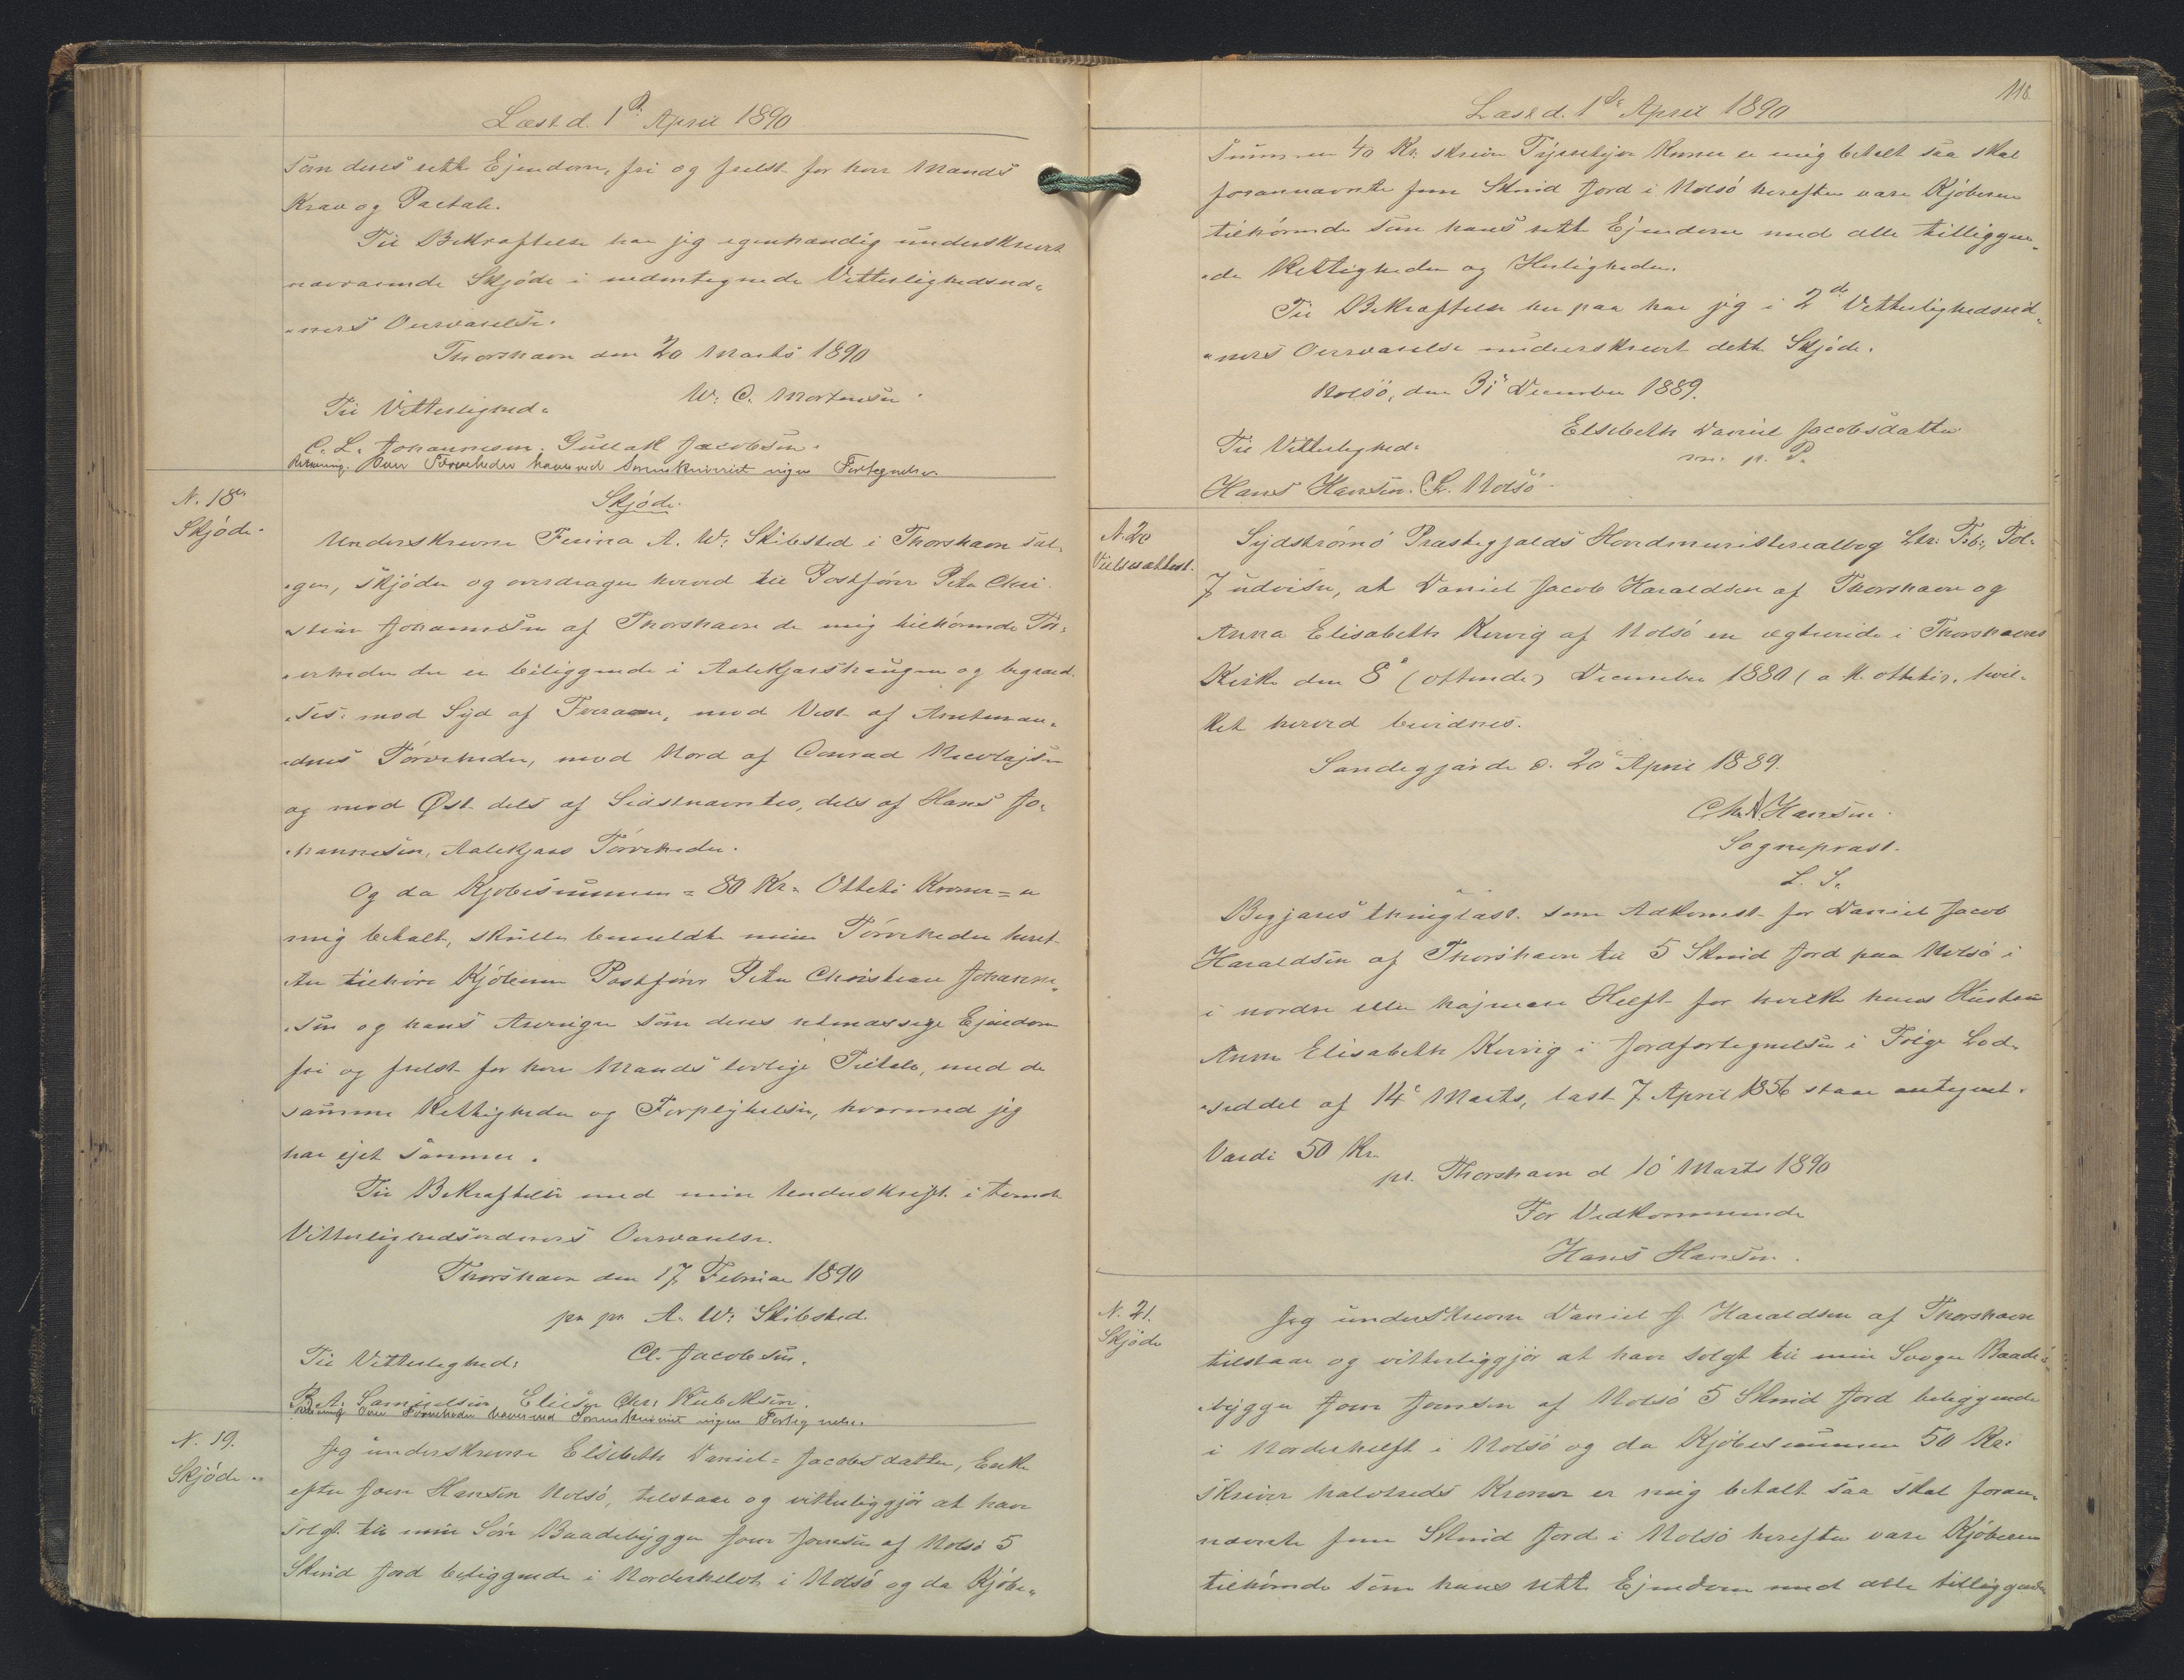 Læst d. 1ste April 1890
som deres rette Ejendom, fri og frelst for hver Mands
Krav og Paatale.
Til Bekræftelse har jeg egenhændig underskrevet
nærværende Skjøde i medundertegnede Vitterlighedsvid-
ners Overværelse.
Thorshavn den 20 Marts 1890
W. C. Mortensen
Til Vitterlighed:
C. L. Johannesen. Gullak Jacobsen.
Retning. Over Tørveheder haves ved Sorenskriveriet ingen Fortegnelse.
N. 18
Skjøde.
Skjøde.
Underskrevne Ferina A. W. Skibsted i Thorshavn sæl-
ger, skjøder og overdrager herved til Postfører Peter Chri-
stian Johannesen af Thorshavn de mig tilhørende Tør-
veheder der er beliggende i Aalekjærshaugen og begrænd-
ses: mod Syd af Tveraaen, mod Vest af Amtman-
dens Tørveheder, mod Nord af Conrad Nicolajsen
og mod Øst dels af Sidstnævntes, dels af Hans Jo-
hannesen, Aalekjærs Tørveheder.
Og da Kjøbesummen = 80 Kr. = Otteti Kroner = er
mig betalt, skulle bemeldte mine Tørveheder heref-
ter tilhøre Kjøberen Postfører Peter Christian Johanne-
sen og hans Arvinger som deres retmæssige Ejendom
fri og frelst for hver Mands lovlige Tiltale, med de
samme Rettigheder og Forpligtelser, hvormed jeg
har ejet samme.
Til Bekræftelse med min Underskrift i tvende
Vitterlighedsvidners Overværelse.
Thorshavn den 17 Februar 1890
pr pr A. W. Skibsted
Cl. Jacobsen.
Til Vitterlighed:
B. A. Samuelsen Elieser Chr. Rubeksen.
Retning Over Tørveheder haves ved Sorenskriveriet ingen Fortegnelse.
N. 19.
Skjøde
Jeg underskrevne Elsebeth Daniel-Jacobsdatter, Enke
efter Joen Hansen Nolsø, tilstaar og vitterliggjør at have
solgt til min Søn Baadebygger Joen Joensen af Nolsø 5
Skind Jord beliggende i Norderhelvt i Nolsø og da Kjøbe-
118
Læst d. 1ste April 1890
summen 40 Kr. skriver Fyrretyve Kroner er mig betalt saa skal
forannævnte fem Skind Jord i Nolsø herefter være Kjøberen
tilhørende som hans rette Ejendom med alle tilliggen-
de Rettigheder og Herligheder.
Til Bekræftelse her paa har jeg i 2de Vitterlighedsvid-
ners Overværelse underskrevet dette Skjøde.
Nolsø, den 31 December 1889.
Elsebeth Daniel Jacobsdatter
m. p. P.
Til Vitterlighed:
Hans Hansen. P. Nolsø
N. 20
Vielsesattest.
Sydstrømø Præstegjælds Hovedministerialbog Ltr: Fb:, Fol:
7 udviser, at Daniel Jacob Haraldsen af Thorshavn og
Anna Elisabeth Kirvig af Nolsø ere ægteviede i Thorshavns
Kirke den 8 (ottende) December 1880 (a K. ottetir, hvil-
ket herved bevidnes.
Sandegjærde d. 20 April 1889.
Chr. N Hansen.
Sognepræst.
L. S.
Begjæres thinglæst som Adkomst for Daniel Jacob
Haraldsen af Thorshavn til 5 Skind Jord paa Nolsø i
i nordre eller højmere Helft for hvilke hans Hustru
Anna Elisabeth Kirvig i Jordfortegnelsen i Følge Lod-
seddel af 14 Marts, læst 7 April 1856 staar antegnet.
Værdi 50 Kr.
pt. Thorshavn d 10 Marts 1890
For Vedkommende
Hans Hansen.
N. 21.
Skjøde
Jeg underskrevne Daniel J. Haraldsen af Thorshavn
tilstaar og vitterliggjør at have solgt til min Svoger Baade-
bygger Joen Joensen af Nolsø 5 Skind Jord beliggende
i Norderhelft i Nolsø og da Kjøbesummen 50 Kr:
skriver halvtreds Kroner er mig betalt saa skal foran-
nævnte fem Skind Jord i Nolsø herefter være Kjøberen
tilhørende som hans rette Ejendom med alle tilliggende